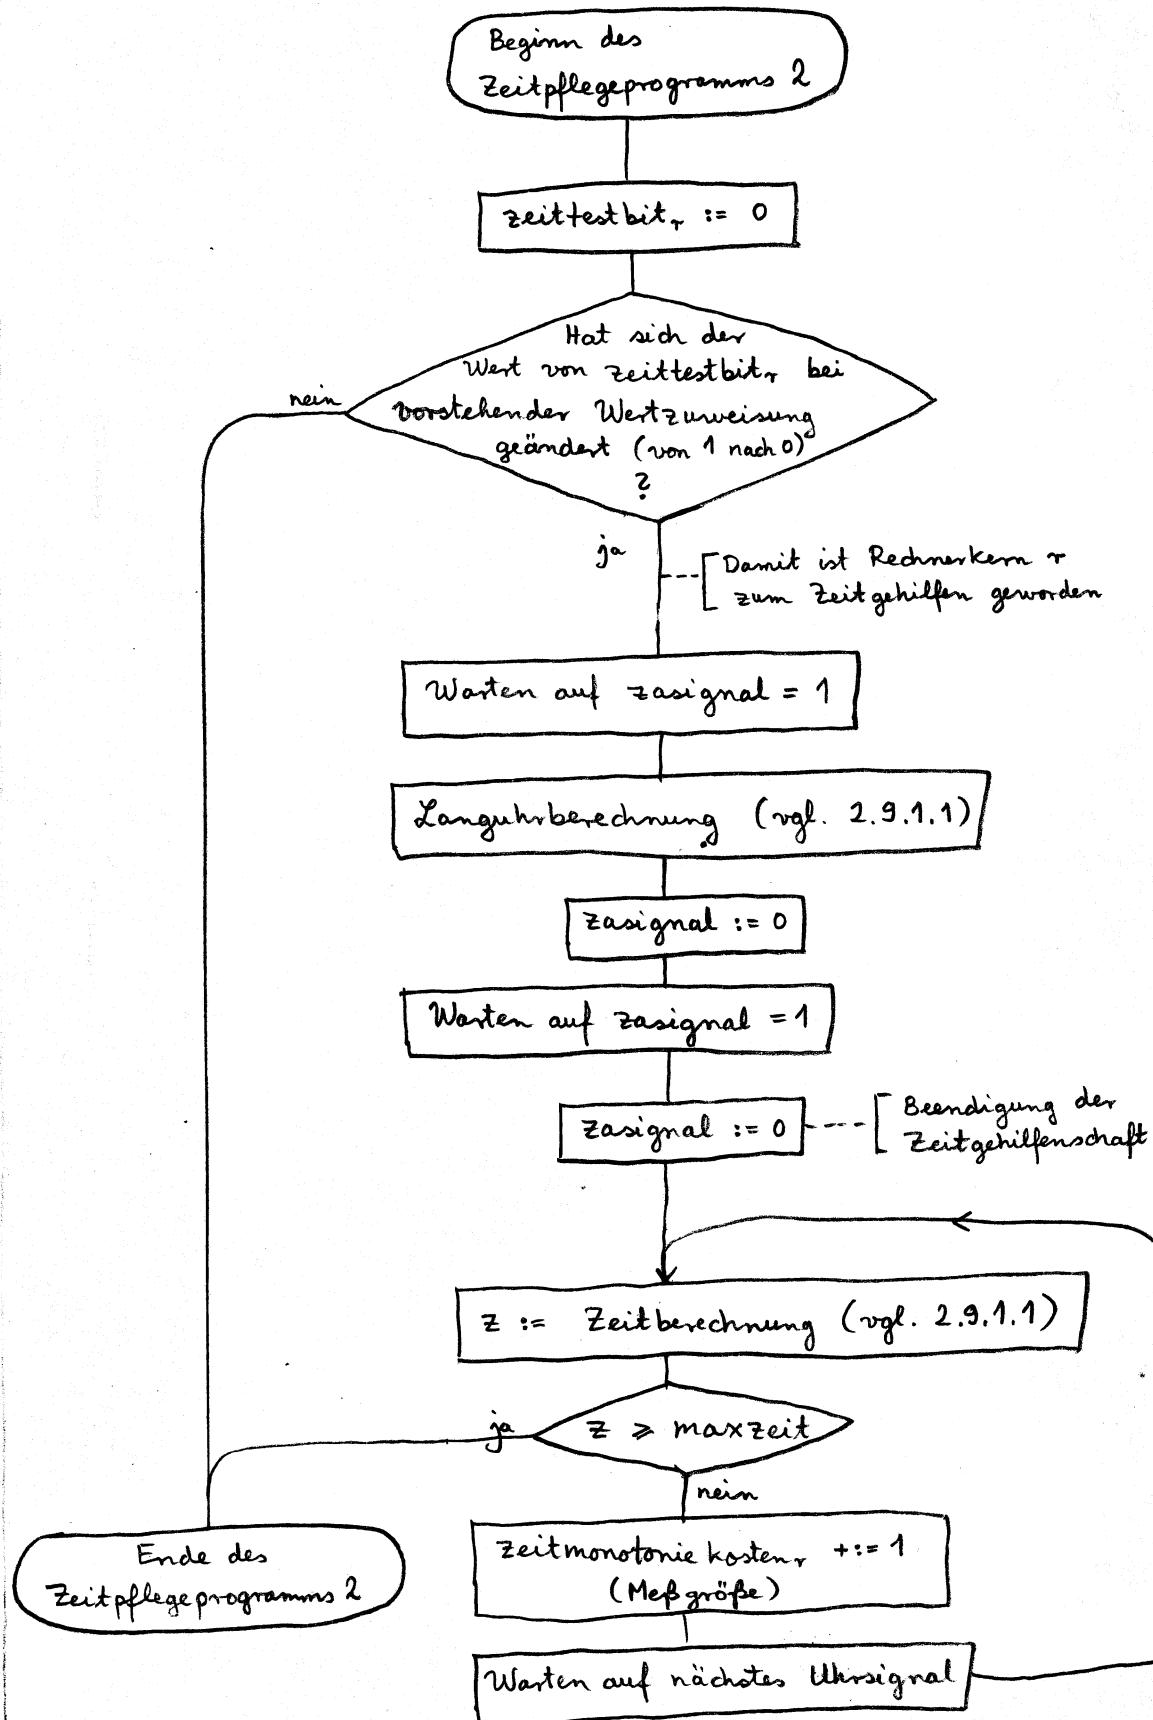 Beginn des
Zeitpflegeprogramms 2
zeittestbitᵣ := 0
Hat sich der
Wert von zeittestbitᵣ bei
nein
vorstehender Wertzuweisung
geändert (von 1 nach 0)
?
ja
Damit ist Rechnerkern r
zum Zeitgehilfen geworden
Warten auf zasignal = 1
Languhrberechnung (vgl. 2.9.1.1)
zasignal := 0
Warten auf zasignal = 1
zasignal := 0
Beendigung der
Zeitgehilfenschaft
z := Zeitberechnung (vgl. 2.9.1.1)
ja
z ⩾ maxzeit
nein
Zeitmonotoniekostenᵣ +:= 1
(Meßgröße)
Ende des
Zeitpflegeprogramms 2
Warten auf nächstes Uhrsignal